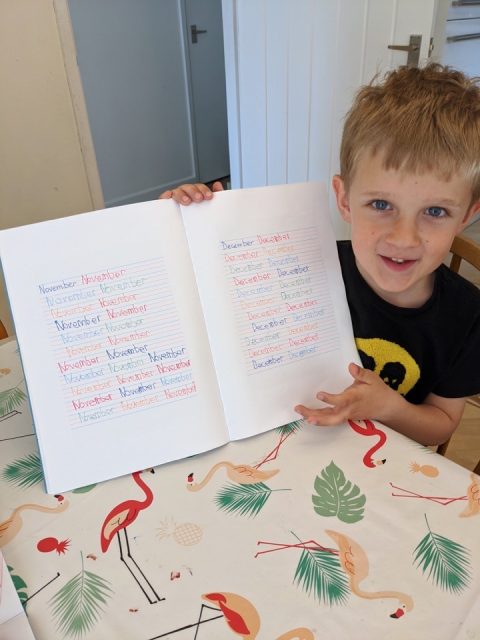 November November
November November
November November
November November
November November
November November
November November
November November November
November November November
November November November
November November November
December December
December December
December December
December December
December December
December December
December December
December December
December December
December December
December December